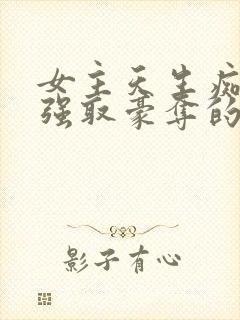 女主天生痴
强取豪夺的
影子有心